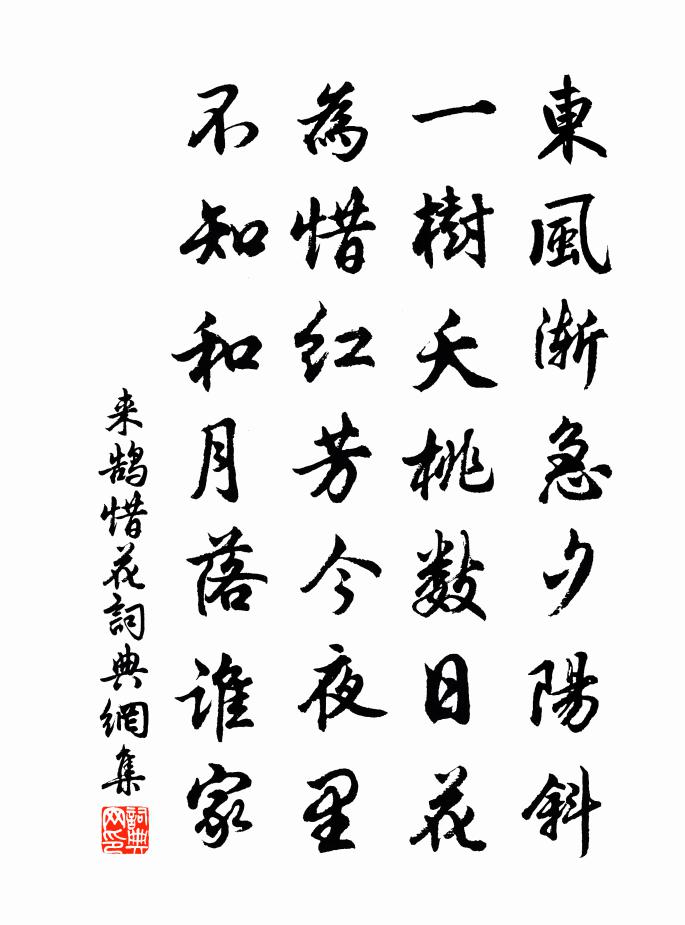 東風漸急夕陽斜
一樹夭桃數日花
為惜红芳今夜里
不知和月落誰家
来鹄惜花詞典網集
詞典网印